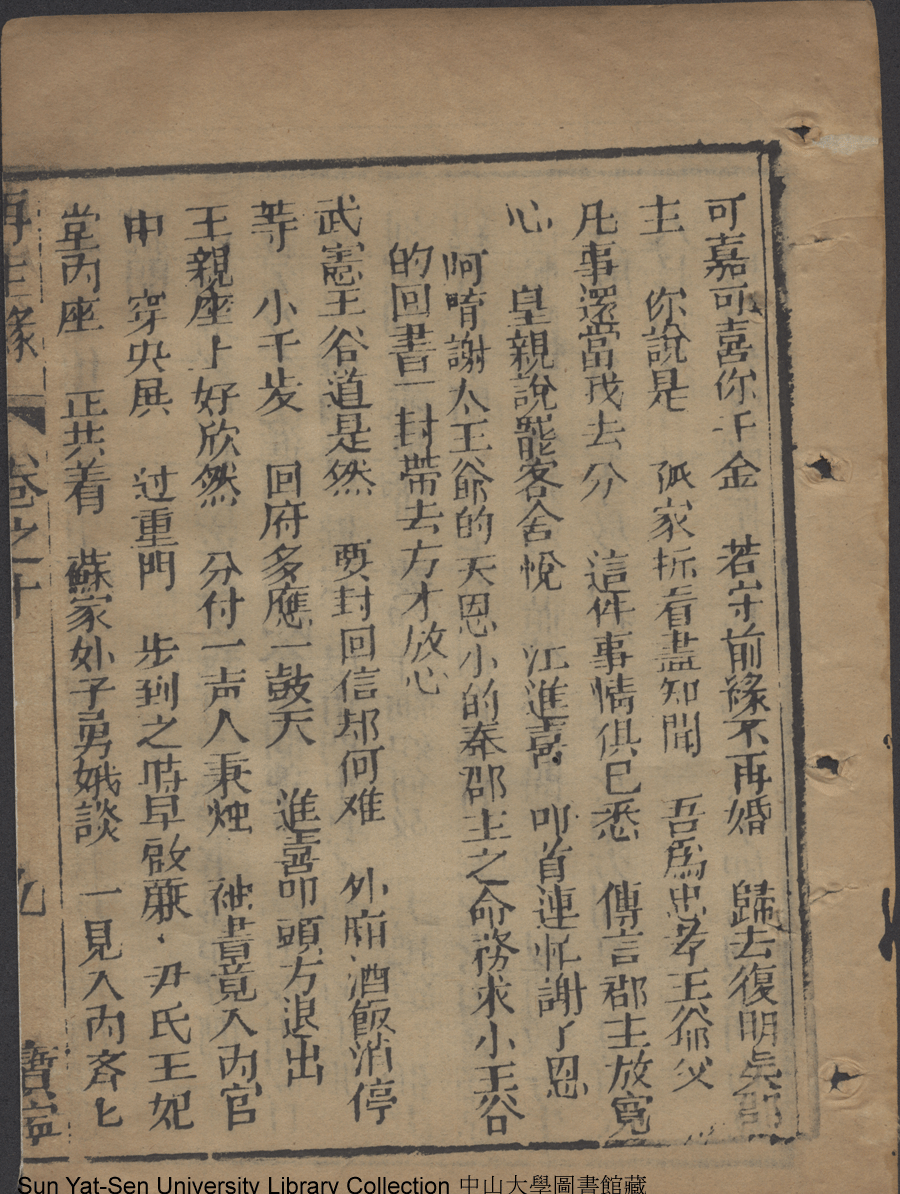 可嘉可喜你千金　若守前緣不再婚　歸去復明吳郡
主　你說是　孤家拆看盡知聞　吾爲忠孝王爺父
凡事還當我去分　這件事情俱已悉　傳言郡主放寬
心　皇親說罷客舍悅　江進喜　叩首連忙謝了恩
阿唷謝太王爺的天恩小的奉郡主之命務求小王谷
的回書一封帶去方才放心
武憲王谷道是然　要封回信却何难　外廂酒飯消停
等　小千歩　回府多應一鼓天　進喜叩頭方退出
王親座上好欣然　分付一声人秉烛　袖書竟入內宮
中　穿央展　过重門　步到之時早啟蔴、尹氏王妃
堂內座　正共着　蘇家外子勇娥談　一見入內吝匕
再生緣　卷之十　九　寶寧
Sun Yat-Sen University Library Collection 中山大學圖書館藏